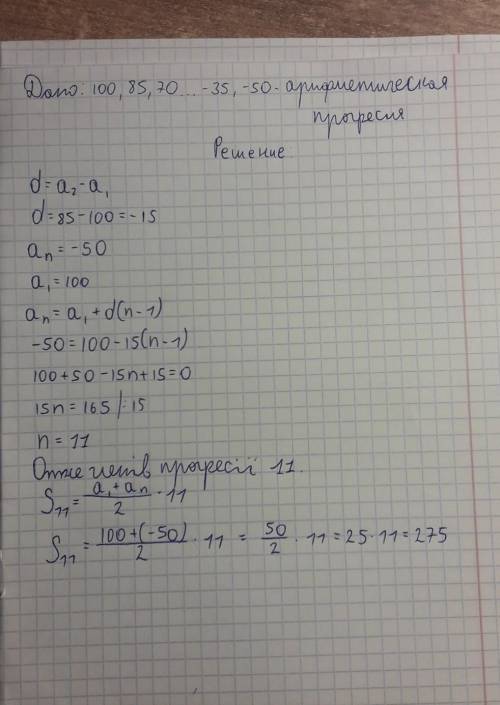 Дано: 100, 85, 70 ... -35, -50 - арифметическая
прогресия
Решение
d = a₂ - a₁
d = 85 - 100 = -15
aₙ = -50
a₁ = 100
aₙ = a₁ + d(n - 1)
-50 = 100 - 15(n - 1)
100 + 50 - 15n + 15 = 0
15n = 165 /: 15
n = 11
Отже членів прогресії 11.
S₁₁ = (a₁ + aₙ)/2 · 11
S₁₁ = (100 + (-50))/2 · 11 = 50/2 · 11 = 25 · 11 = 275